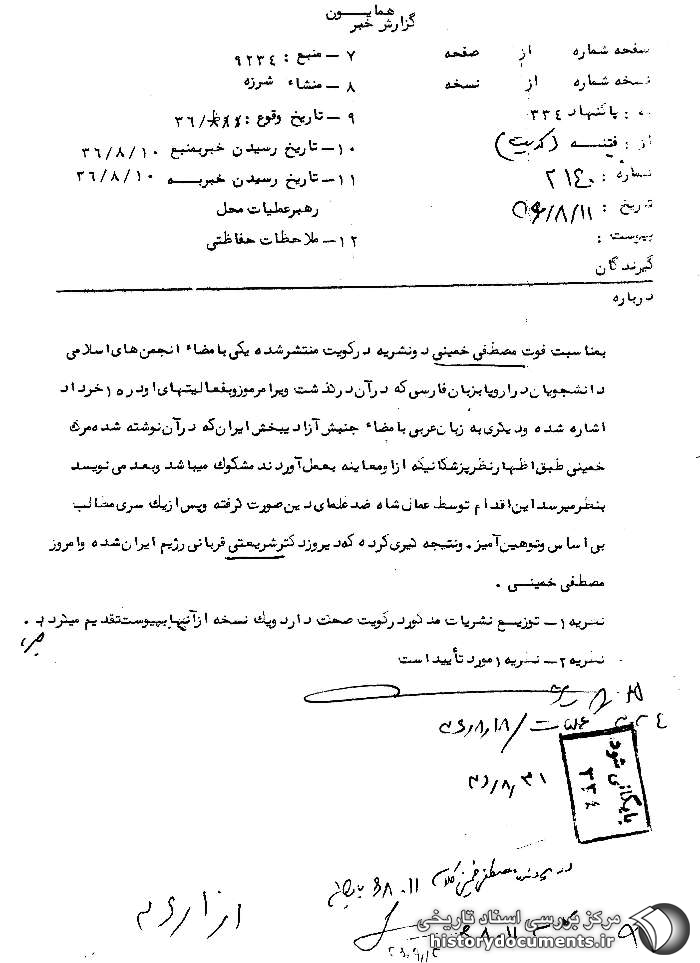 همایون
گزارش خبر
صفحه شماره از صفحه
نسخه شماره از نسخه
به : باشنهاد ۳۳٤
از : فیتیسه (کویت)
شماره : ۲۱٤۰
تاریخ : ۳۶/۸/۱۱
پیوست :
گیرندگان
۷ – منبع : ۹۲۳٤
۸ – منشاء شرزه
۹ – تاریخ وقوع : ۳۶/
۱۰– تاریخ رسیدن خبربمنبع ۳۶/۸/۱۰
۱۱– تاریخ رسیدن خبربه ۳۶/۸/۱۰
رهبرعملیات محل
۱۲– ملاحظات حفاظتی
درباره
بمناسبت فوت مصطفی خمینی دونشریه درکویت منتشرشده یکی بامضاء انجمن های اسلامی
دانشجویان دراروپابزبان فارسی که درآن درگذشت ویرا مرموزوبفعالیتهای اودر۱۵خرداد
اشاره شده ودیگری به زبان عربی بامضاء جنبش آزادیبخش ایران که درآن نوشته شده مرگ
خمینی طبق اظهارنظرپزشکانیکه ازاومعاینه بعمل آوردند مشکوک میباشد وبعد می نویسد
بنظرمیرسداین اقدام توسط عمال شاه ضدعلمای دین صورت گرفته وپس ازیک سری مطالب
بی اساس وتوهین آمیز . ونتیجه گیری کرده که دیروزدکترشریعتی قربانی رژیم ایران شده وامروز
مصطفی خمینی .
نظریه ۱– توزیع نشریات مذکوردرکویت صحت داردویک نسخه ازآنهابه پیوست تقدیم میگردد .
نظریه ۲– نظریه ۱ مورد تأییداست
بایگانی شود
۳۳٤
مرکز بررسی اسناد تاریخی
historydocuments.ir